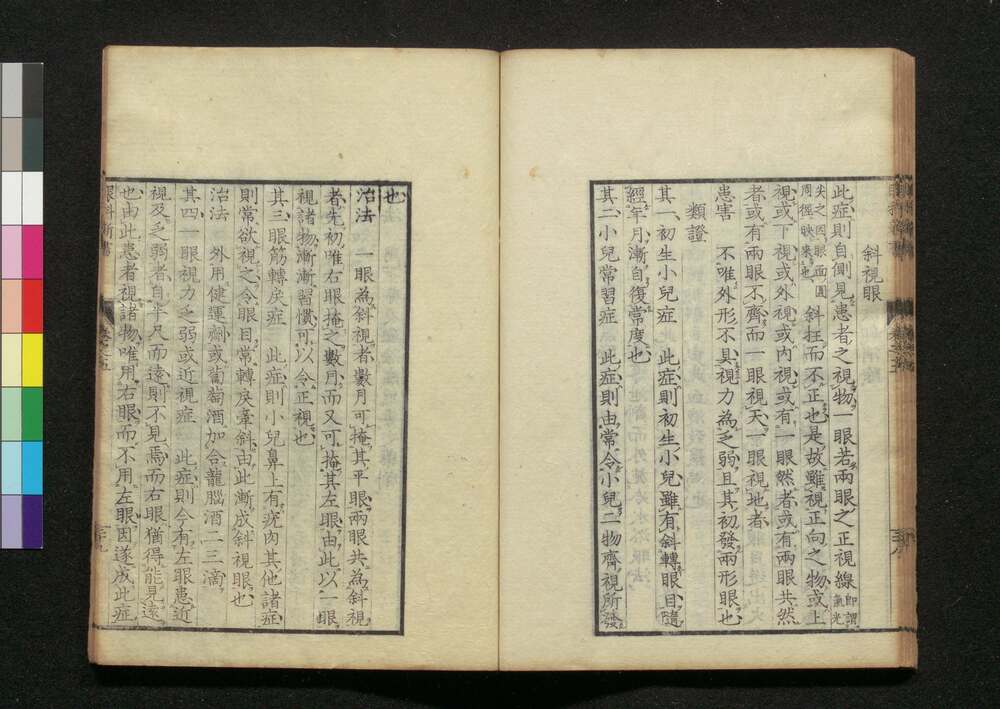 斜視眼
此症則自側見患者之視物一眼若兩眼之正視線即謂氣光
尖之因眼面圓周徑映來也斜抂而不正也是故雖視正向之物或上
視或下視或外視或內視或有一眼然者或有兩眼共然
者或有兩眼不齊而一眼視天一眼視地者
患害 不唯外形不具視力為之弱且其初發兩形眼也
類證
其一初生小兒症 此症則初生小兒雖有斜轉眼目隨
經年月漸自復常度也
其二小兒常習症 此症則由常令小兒二物齊視所發
也
治法 一眼為斜視者數月可掩其平眼兩眼共為斜視
者先初唯右眼掩之數月而又可掩其左眼由此以一眼
視諸物漸漸習慣可以令正視也
其三眼筋轉戾症 此症則小兒鼻上有疣肉其他諸症
則常欲視之令眼目常轉戾牽斜由此漸成斜視眼也
治法 外用健運劑或葡萄酒加合龍腦酒二三滴
其四一眼視力乏弱或近視症 此症則今有左眼患近
視及乏弱者自半尺而遠則不見焉而右眼猶得能見遠
也由此患者視諸物唯用右眼而不用左眼因遂成此症